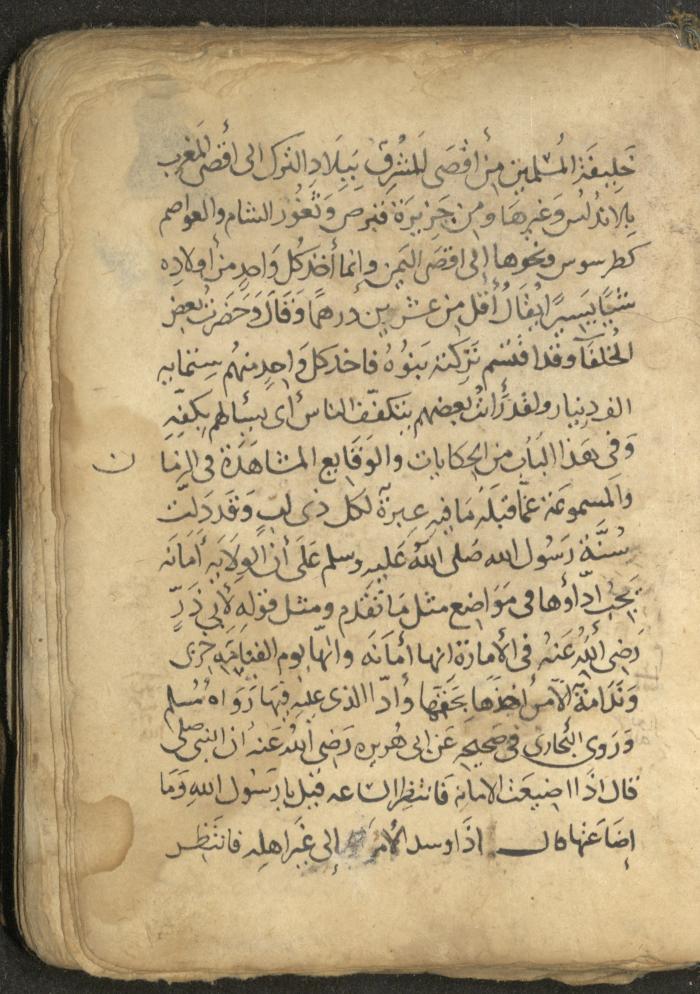 خَلِيفَة المُسْلِمين مِنْ أقْصَى المَشْرِق بِبِلَادِ الترك الى أقصى المَغْرِب
بِالاندلس وَغيرِهَا ومن جَزيرَة قبرص وَثغُور الشام والعواصم
كطرسوس ونحوها إلى اقصَى اليَمن وانما أخذ كل وَاحدٍ من أولاده
شَيأً يَسِيرًا يُقَالُ أقل من عشرين درهمًا وَقَالَ وَحَضرتُ بَعض
الخلفآء وقد اقتسم تركته بَنوُهُ فاخذ كل وَاحدٍ منهُم ستمايه
الف دينار ولقد رَأيتُ بعضهم يتكفف الناس أى يسألهم بكفّهِ
وَفى هَذا البَابِ من الحكايات والوَقَايع المشاهَدَة فى الزما ن
وَالمسموعَة عمّا قبلَهُ مَا فيهِ عِبرةٌ لكل ذى لبٍ وَقَد دَلّت
سُنَّة رَسُول الله صَلى اللهُ عَليهِ وسلم عَلَى أن الولَايَه أمَانَه
يَجبُ ادَاؤهَا فى مَوَاضع مثل مَا تَقدم ومثل قولهِ لأبى ذَرٍّ
رَضى اللهُ عَنهُ فى الأمارة انها أمَانَه وانّها يوم القيَامَه خزى
وَنَدَامَة الّا من أخذَهَا بحَقهَا وأدّا الذى عليهِ فيهَا رَوَاهُ مُسلم
وَرَوى البُخارى فى صَحيحهِ عَن ابى هُريره رَضى اللهُ عَنهُ ان النبى صلى
قال اذَا اضيعَت الامانه فَانتظِر الساعه قيل يا رَسُول اللهِ وَمَا
إضَاعَتهَا قال اذَا وسد الأمر إلى غَير اهلِه فانتَظر